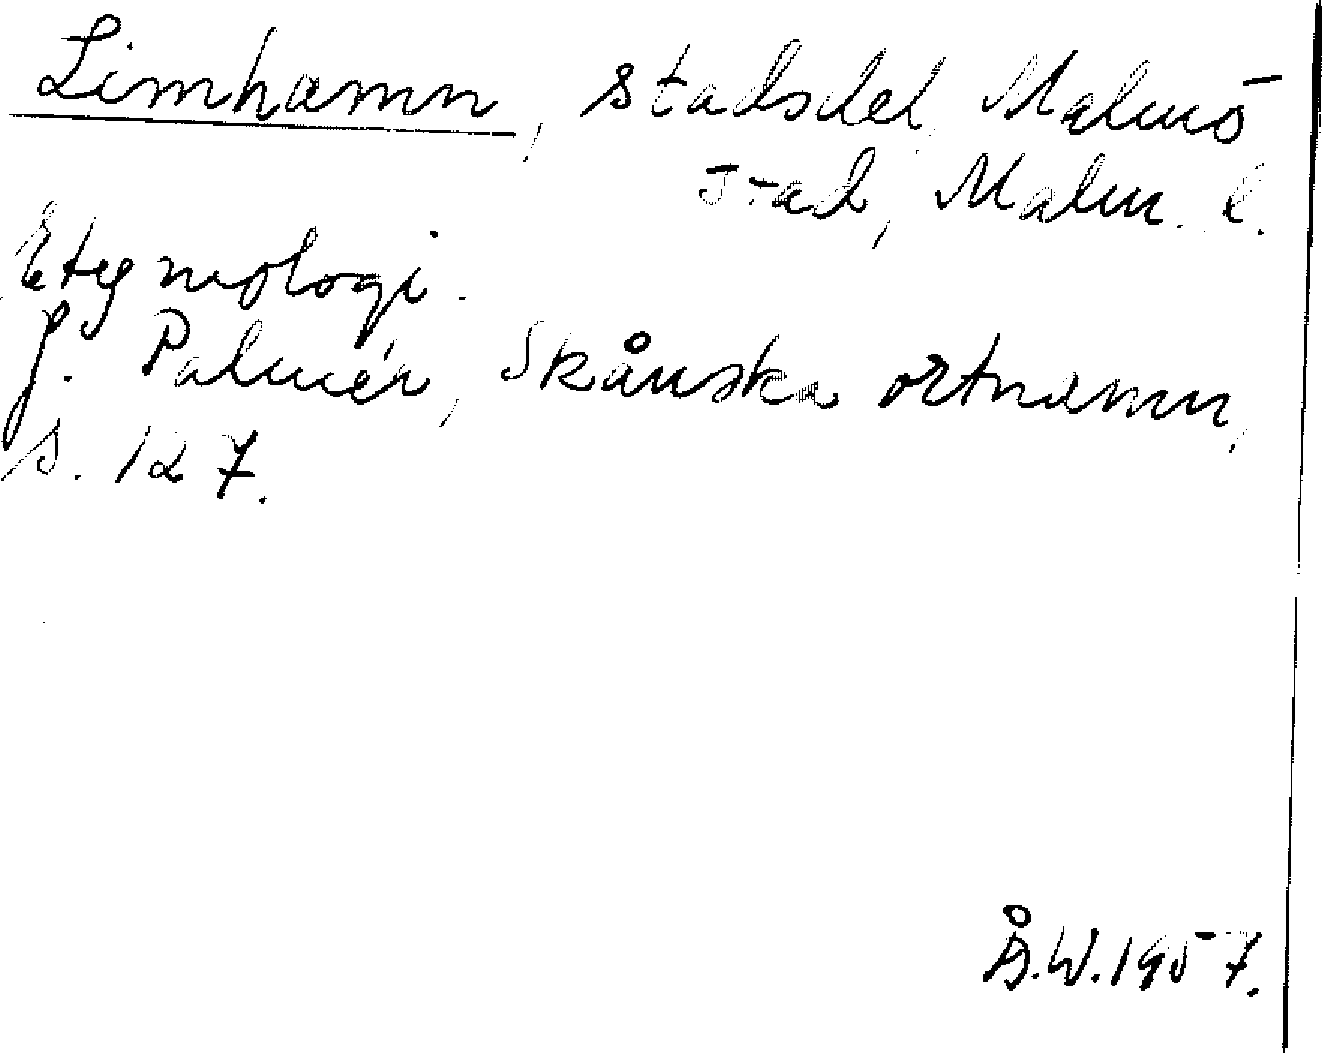 Limhamn, stadsdel, Malmö
stad, Malm. l.
Etymologi.
J. Palmér, Skånska ortnamn,
s. 127.
Å.W.1957.